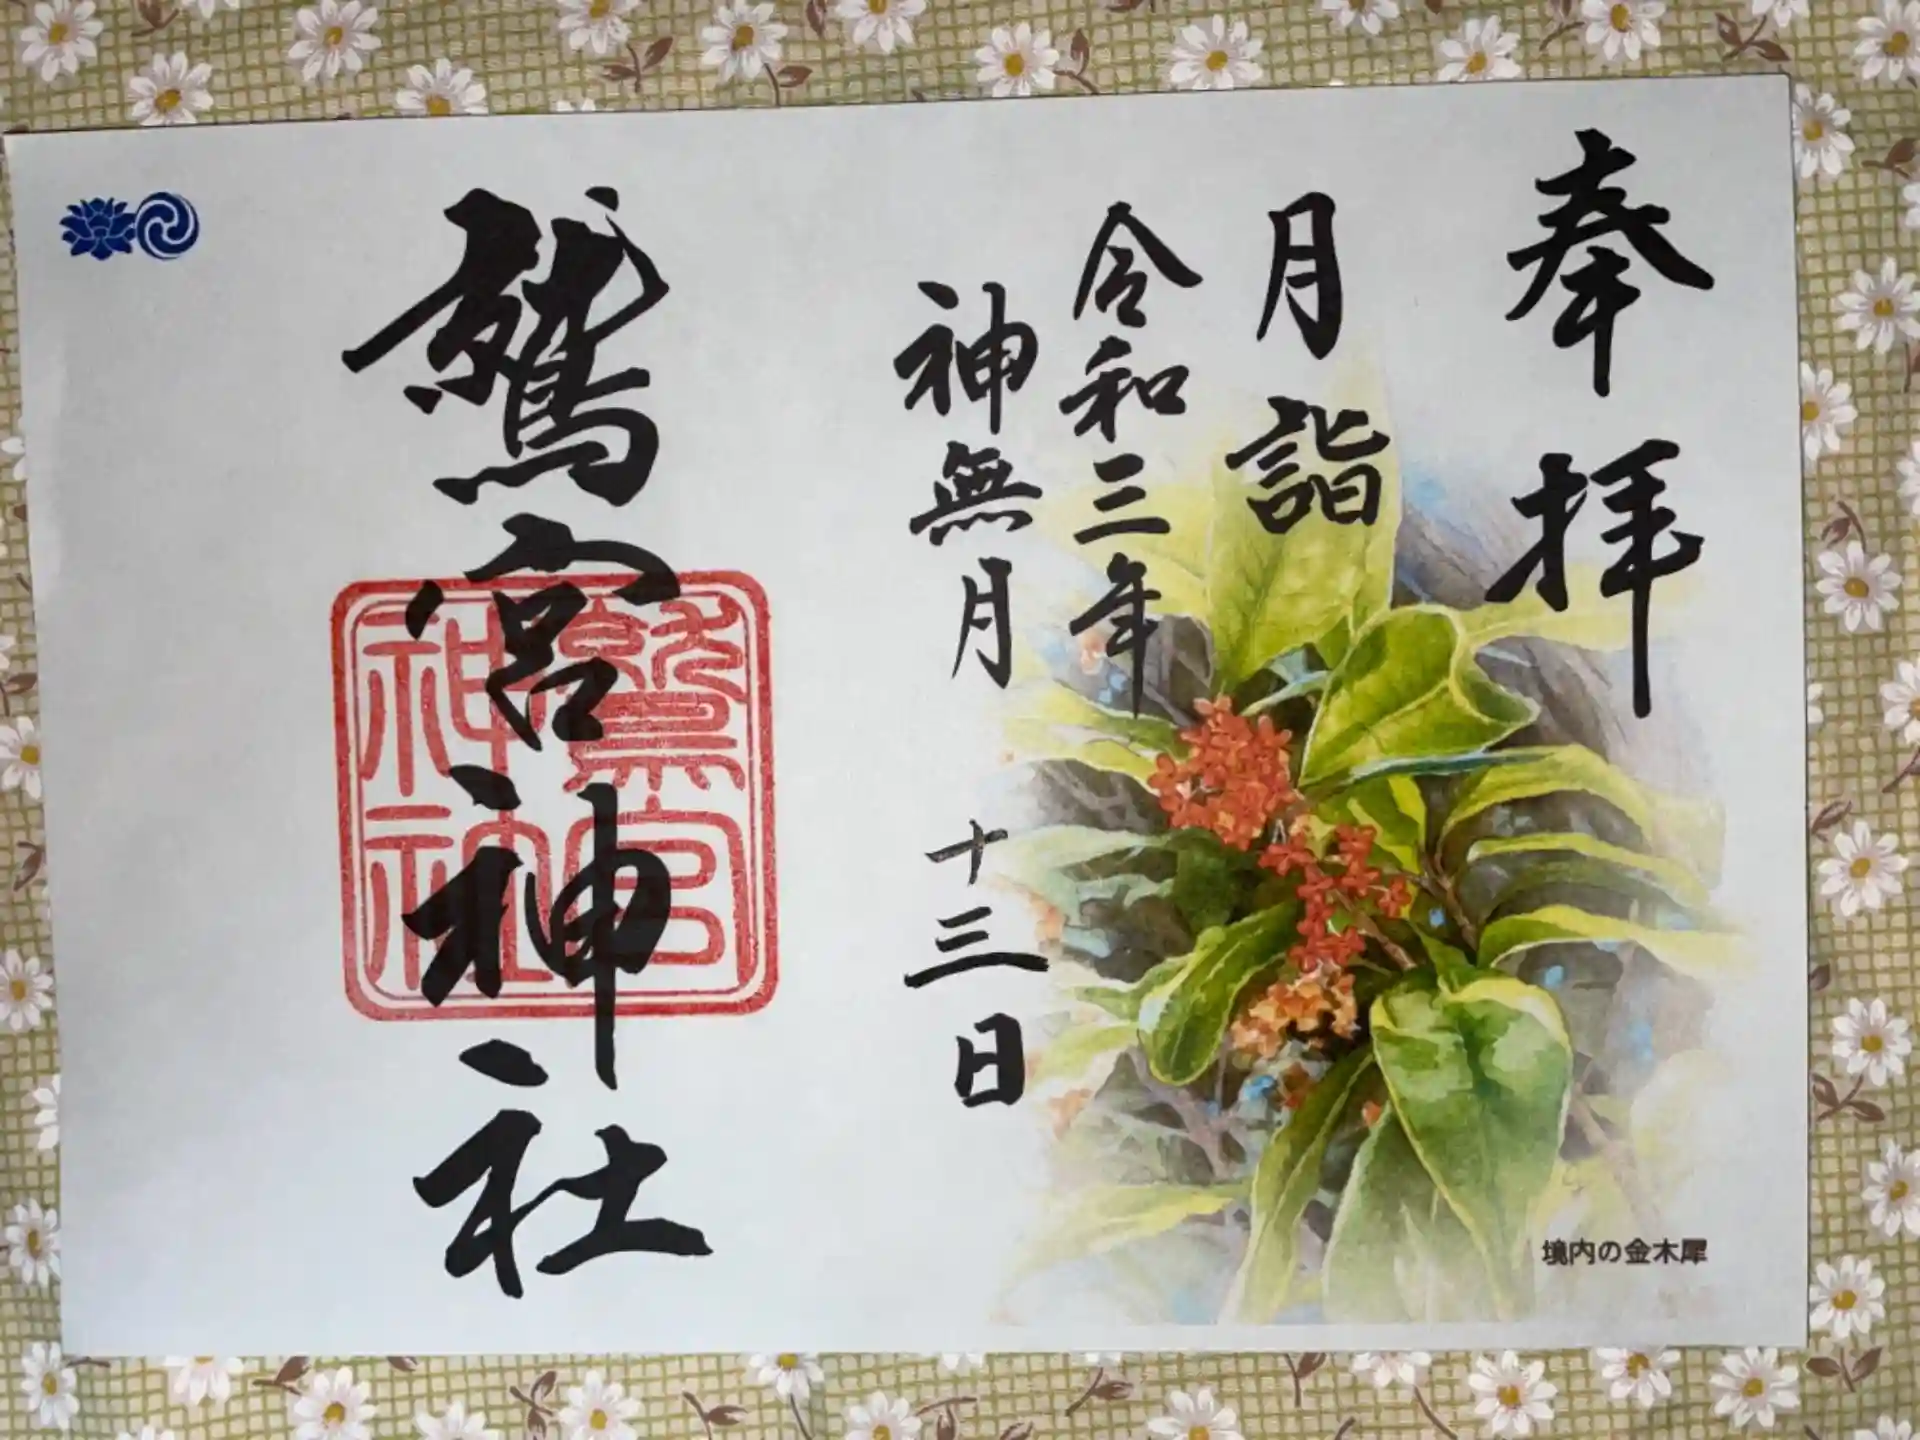 奉拝
月詣
令和三年
神無月 十三日
鷲宮神社
鷲宮
神社
境内の金木犀